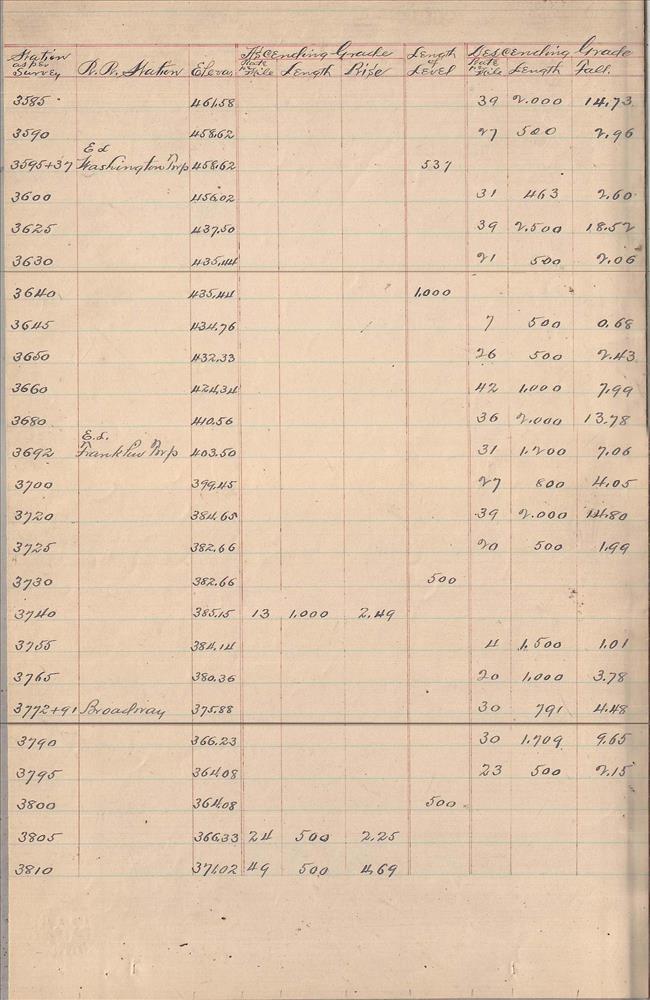 Station as per Survey R.R. Station Eleva. Ascending Grade Rate per Mile Length Rise Length of Level Descending Grade Rate per Mile Length Fall.
3585 461.58 39 2.000 14.73
3590 458.62 27 500 2.96
Ed
3595+37 Washington Twp 458.62 537
3600 456.02 31 463 2.60
3625 437.50 39 2.500 18.52
3630 435.44 21 500 2.06
3640 435.44 1,000
3645 434.76 7 500 0.68
3650 432.33 26 500 2.43
3660 424.34 42 1.000 7.99
3680 410.56 36 2.000 13.78
Ed.
3692 Franklin Twp 403.50 31 1.200 7.06
3700 399.45 27 800 4.05
3720 384.65 39 2.000 14.80
3725 382.66 20 500 1.99
3730 382.66 500
3740 385.15 13 1,000 2.49
3755 384.14 4 1.500 1.01
3765 380.36 20 1,000 3.78
3772+91 Broadway 375.88 30 791 4.48
3790 366.23 30 1.709 9.65
3795 364.08 23 500 2.15
3800 364.08 500
3805 366.33 24 500 2.25
3810 371.02 49 500 4.69